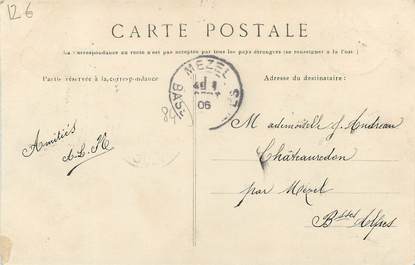 126
CARTE POSTALE
La Correspondance au recto n'est pas acceptée par tous les pays étrangers (se renseigner à la Poste)
Partie réservée à la correspondance
Adresse du destinataire :
MEZEL
06
BASSES
84
Amitiés
Mademoiselle J. Andreau
Châteauredon
par Mezel
Bsses Alpes